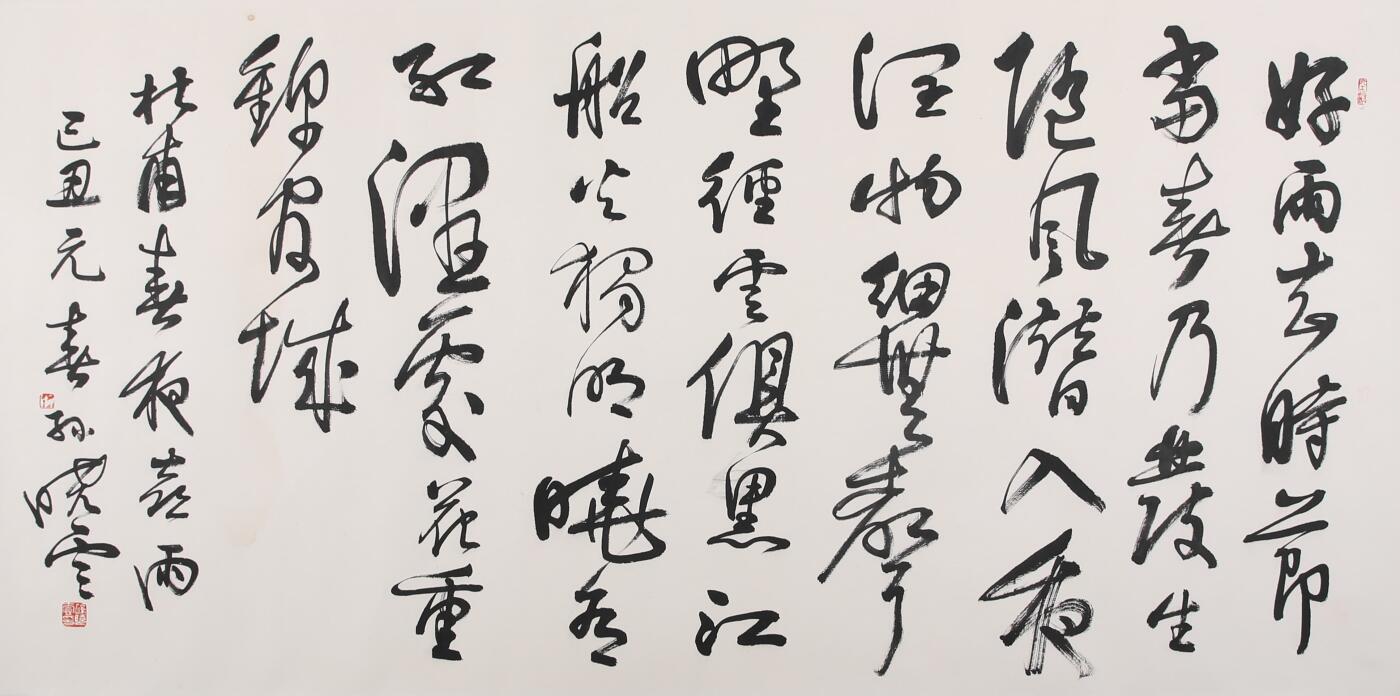 好雨知時節
當春乃發生
隨風潛入夜
潤物細無聲
野徑雲俱黑江
船火獨明曉看
紅濕處花重
錦官城
杜甫春夜喜雨
己丑元春孫曉雲